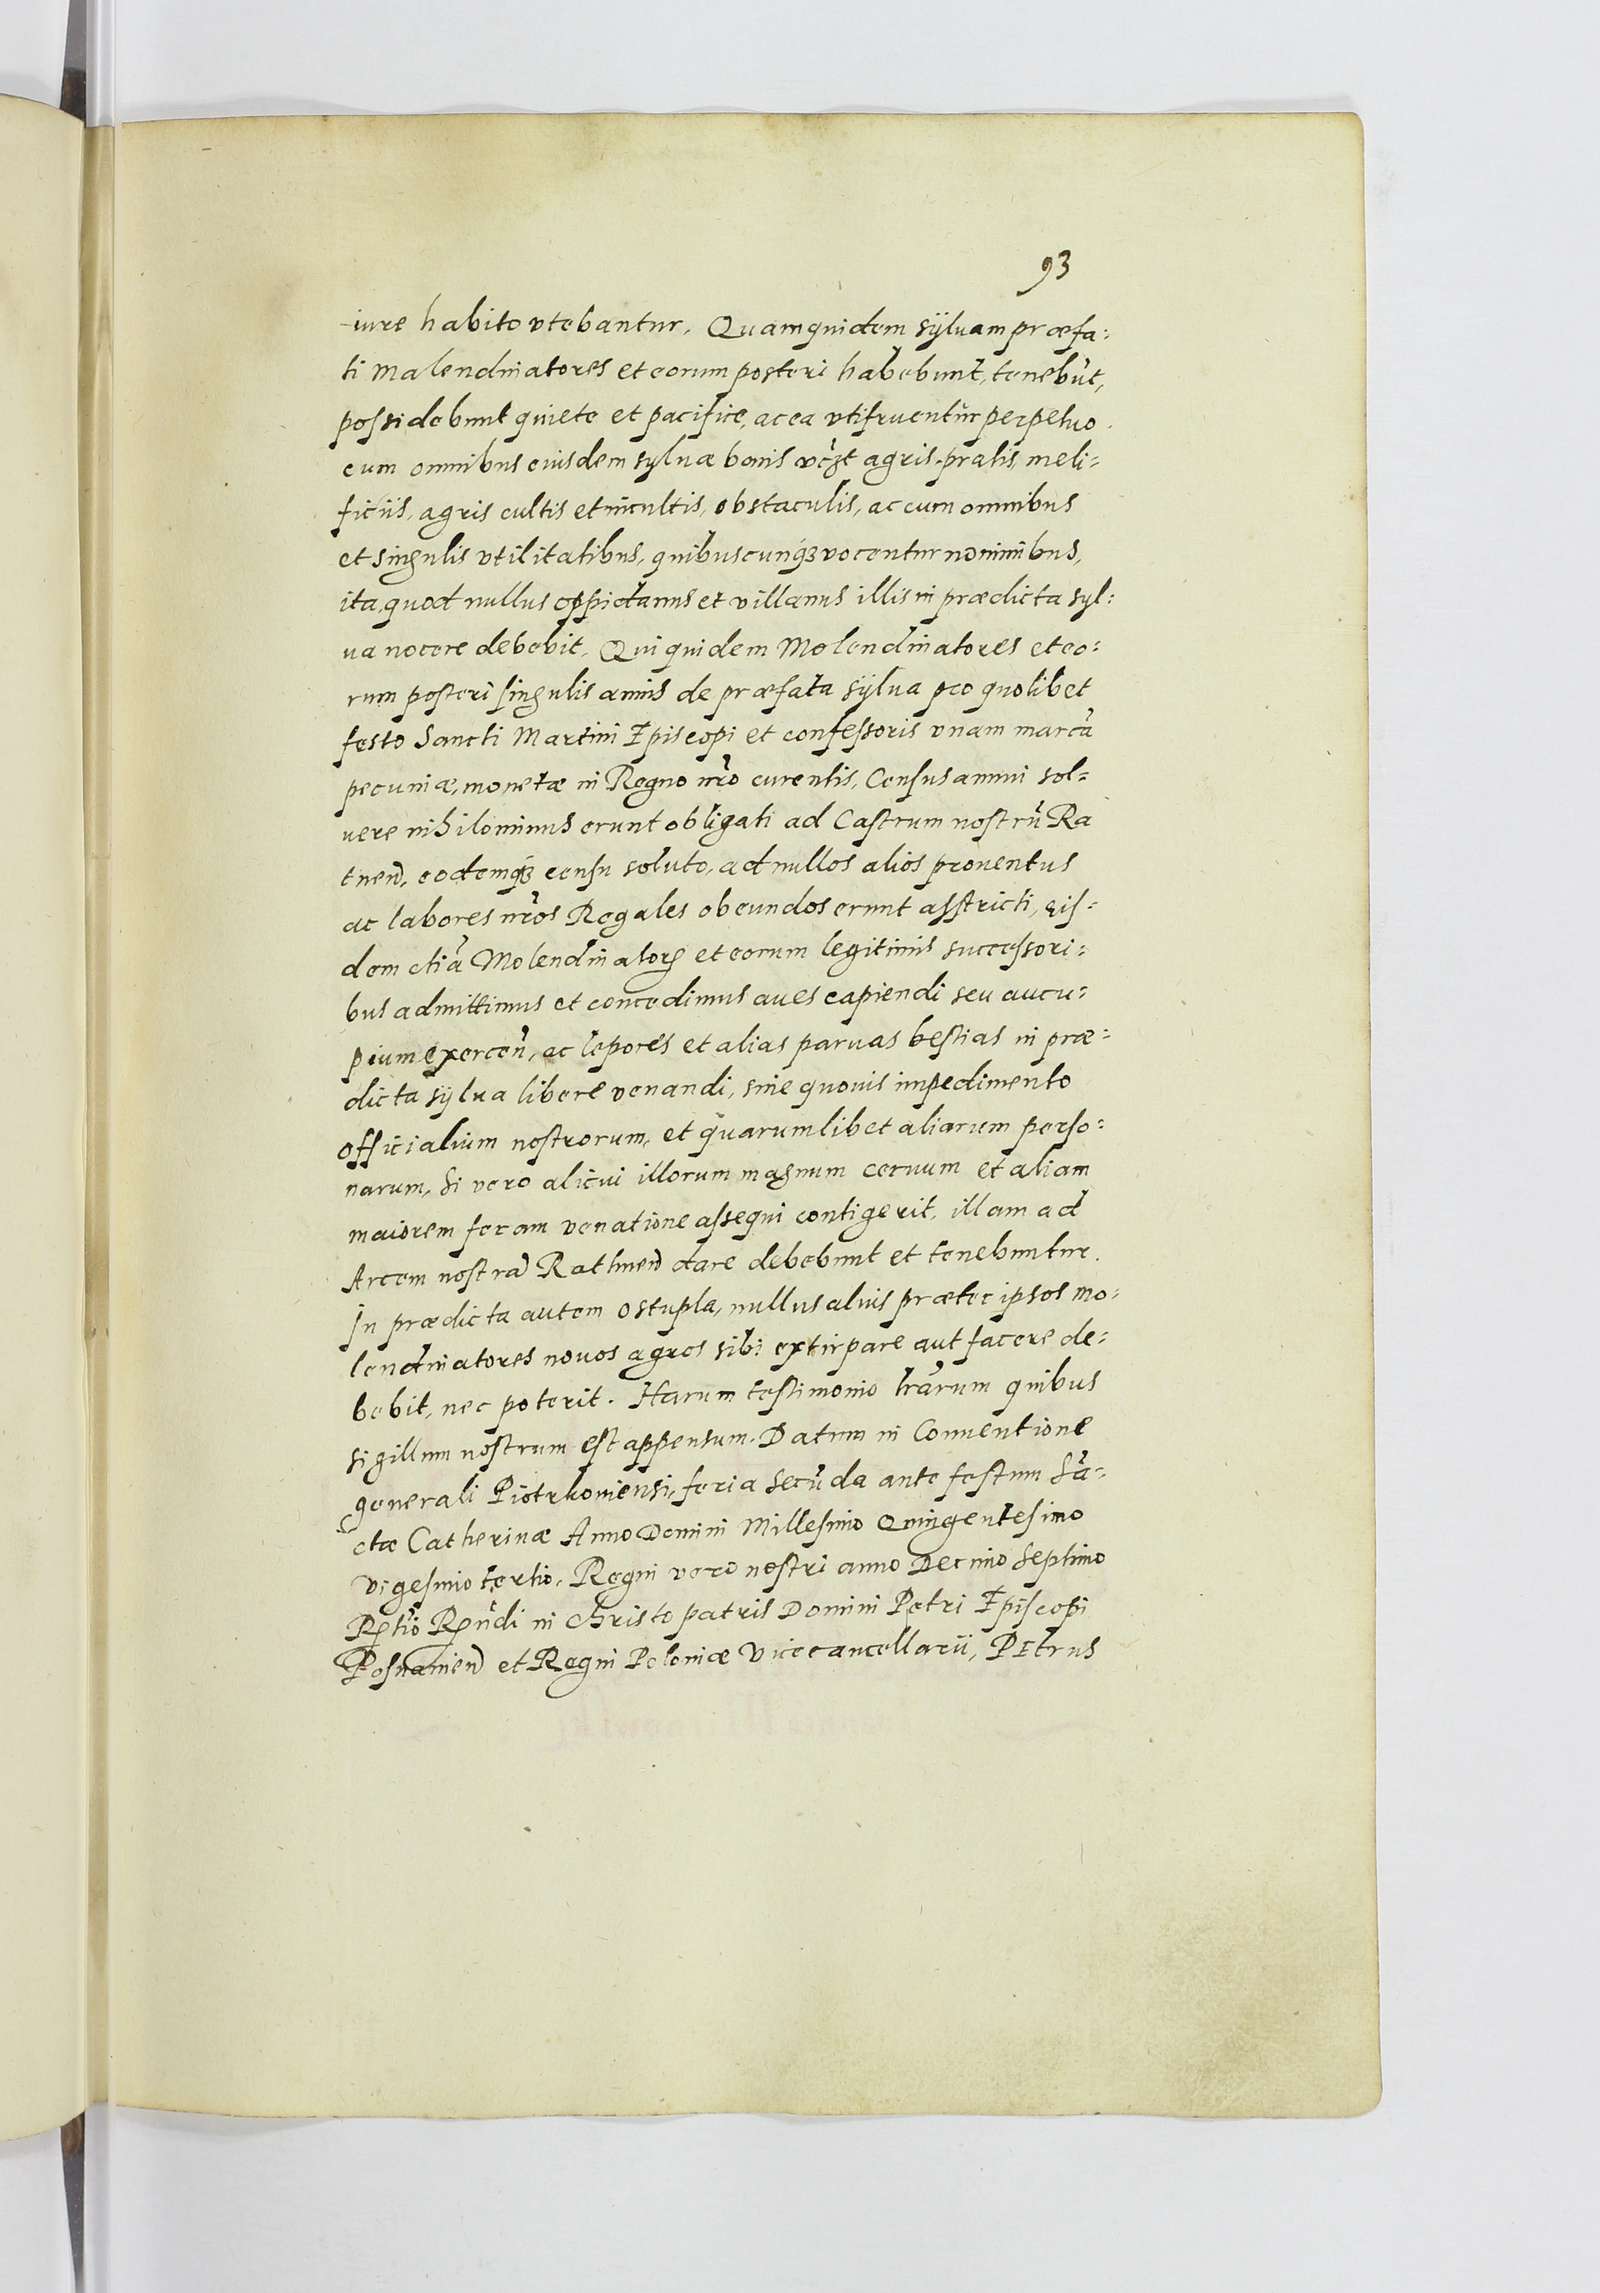 93
iure habito vtebantur. Quamquidem sÿluam præfa:
ti Malendinatores et eorum posteri habebunt, tenebūt,
possidebunt quiete et pacifice, ac ea vtifruentur perpetuo.
cum omnibus eiusdem syluæ bonis vcz̃t agris, pratis, meli:
ficiis, agris cultis et incultis, obstaculis, ac cum omnibus
et singulis vtilitatibus, quibuscunqȝ vocentur nominibus,
ita quod nullus oppidanus et villanus illis in prædicta syl:
ua nocere debebit. Qui quidem Molendinatores et eo:
rum posteri singulis annis de præfata sÿlua pro quolibet
festo Sancti Martini Episcopi et confessoris vnam marcā
pecuniæ, monetæ in Regno nr̃o curentis, Census annui sol:
uere nihilominus erunt obligati ad Castrum nostrū Ra
tneñ, eodemqȝ censu soluto, ad nullos alios prouentus
ac labores nr̃os Regales obeundos erunt asstricti, eis:
dem etiā Molendinatorꝫ et eorum legitimis successori:
bus admittimus et concedimus aues capiendi seu aucu:
pium exerceñ, ac lepores et alias paruas bestias in præ:
dicta sÿlua libere venandi, sine quouis impedimento
officialium nostrorum, et quarumlibet aliarum perso:
narum, Si vero alicui illorum magnum ceruum et aliam
maiorem feram venatione assequi contigerit, illam ad
Arcem nostrā Rathneñ dare debebunt et tenebuntur.
In prædicta autem ostupla, nullus alius præter ipsos mo:
lendinatores nouos agros sibi extirpare aut facere de:
bebit, nec poterit. Harum testimonio lr̃arum quibus
sigillum nostrum est appensum. Datum in Conuentione
generali Piotrkouiensi, feria Secūda ante festum Sā:
ctæ Catherinæ Anno Domini Millesimo Quingentesimo
Vigesimo tertio, Regni vero nostri anno Decimo Septimo
Rꝫtio Rꝫñdi in christo patris Domini Petri Episcopi
Posnanieñ et Regni Poloniæ Vicecancellarii, PEtrus